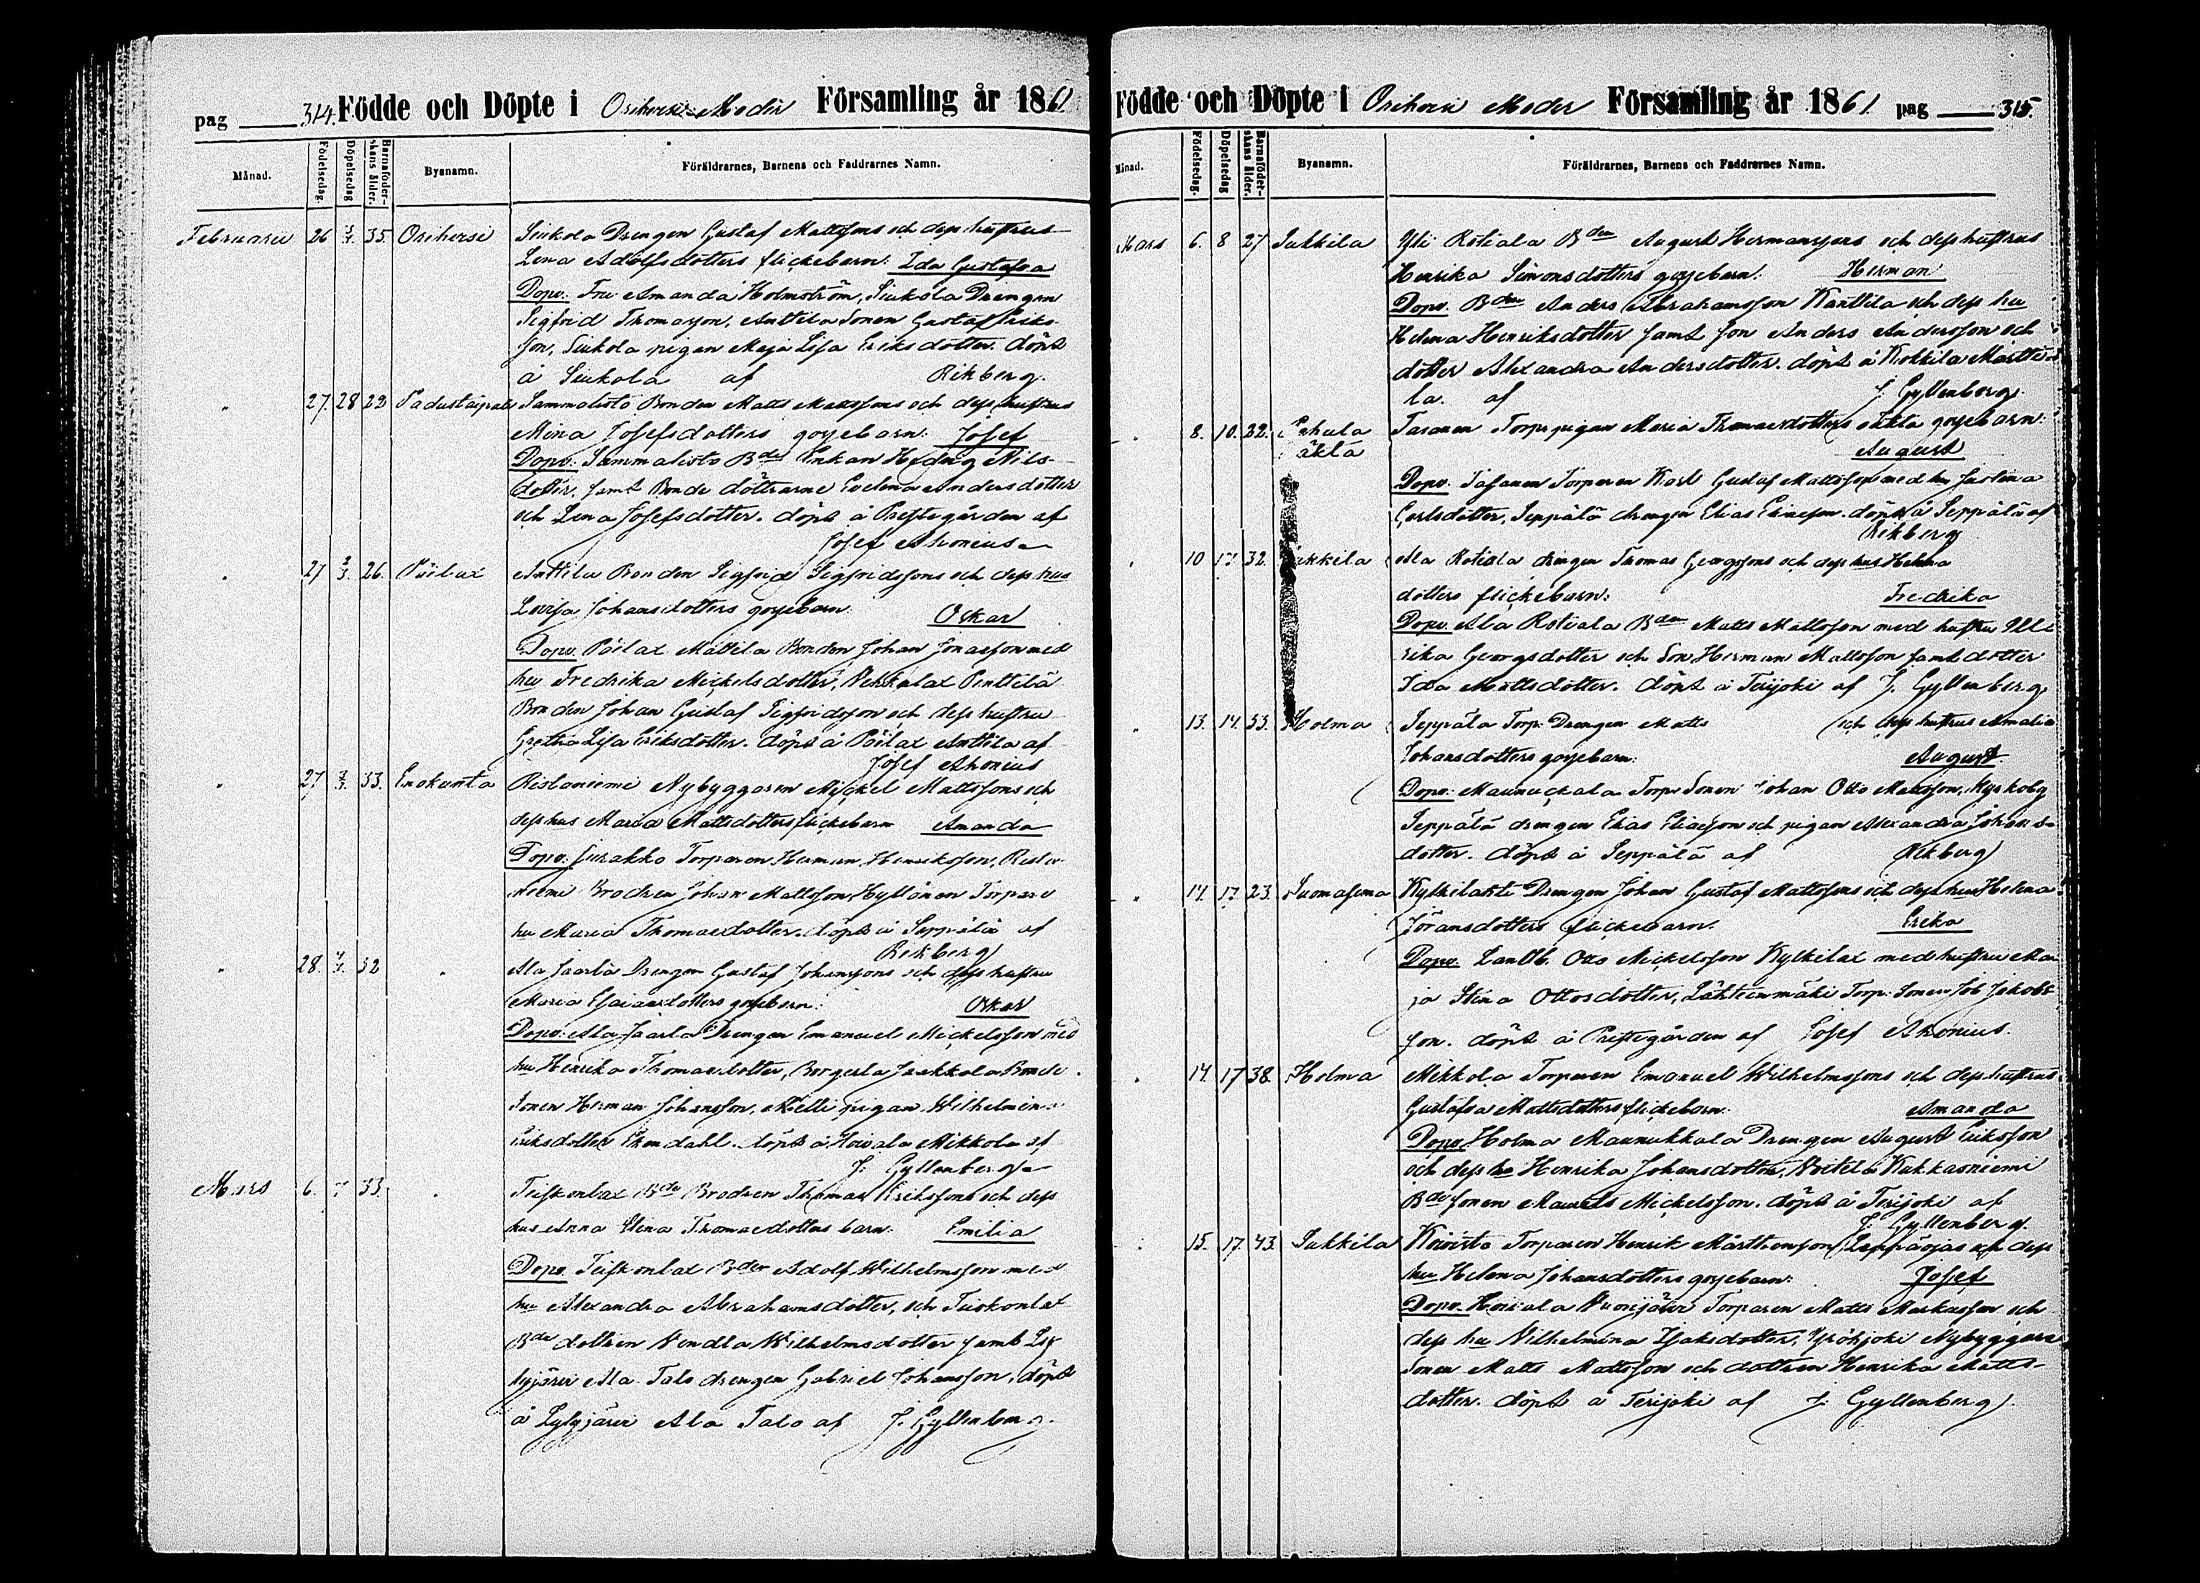 pag 314. Födde och Döpte i Orihvesi Moder Församling år 1861
Månad. Födelsedag. Döpelsedag Barnaföderskans ålder. Byanamn. Föräldrarnes, Barnens och Faddrarnes Namn.
Februarii 26 3/3 35. Orihvesi Siukola Drengen Gustaf Mattssons och dess hustrus
Lena Adolfsdotters flickebarn: Ida Gustafva
Dopv: Fru Amanda Holmström, Siukola Drengen
Sigfrid Thomasson, Anttila Sonen Gustaf Eriks-
son, Siukola pigan Maja Lisa Eriksdotter. döpt
å Siukola af Rikberg.
" 27. 28 22 Sammalisto Bonden Matts Mattssons och dess hustrus
Mina Josefsdotters gossebarn: Josef
Dopv: Sammalisto Bde Enkan Hedvig Nils-
dotter, samt Bonde döttrarne Evelina Andersdotter
och Lena Josefsdotter. döpt å Prestgården af
Josef Ahonius
" 27 3/3. 26. Pöilax Anttila Bonden Sigfrid Sigfridssons och dess hus
Lovisa Johansdotters gossebarn. Oskar
Dopv. Pöilax Mattila Bonden Johan Jonasson med
hu Fredrika Mickelsdotter, Vehkalax Penttilä
Bonden Johan Gustaf Sigfridsson och dess hustru
Gretha Lisa Eriksdotter. döpt å Pöilax Anttila af
Josef Ahonius
" 27. 33. Enokunta Ristaniemi Nybyggaren Mickel Mattssons och
dess hus Maria Mattsdotters flickebarn Amanda
Dopv: Jurakko Torparen Herman Henriksson, Rista-
niemi Brodren Johan Mattsson, Hyllönen Torpare
hu Maria Thomasdotter. döpt å Seppälä af
Rikberg
" 28. 32 " Ala Jaarla Drengen Gustaf Johanssons och dess hustru
Maria Esaiasdotters gossebarn: Oskar
Dopv: Ala Jaarla Drengen Emanuel Mickelsson med
hu Henrika Thomasdotter, Jaakkola Bonde
Sonen Herman Johansson, pigan Wilhelmina
Eriksdotter Ekendahl. döpt å Hoivala Mikkola af
J. Gyllenberg
Mars 6. 7 33. " Teiskonlax Bde Brodren Thomas Erikssons och dess
hus Anna Stina Thomasdotters barn: Emilia
Dopv. Teiskonlax Bden Adolf Wilhelmsson med
hu Alexandra Abrahamsdotter, och Teiskonlax
Bde dottren Vendla Wilhelmsdotter samt Lyly-
lyjärvi Ala Talo drengen Gabriel Johansson, döpt
å Lylyjärvi Ala Talo af J. Gyllenberg.
Födde och Döpte i Orihvesi Moder Församling år 1861. pag 315.
Månad. Födelsedag. Döpelsedag Barnaföderskans ålder. Byanamn. Föräldrarnes, Barnens och Faddrarnes Namn.
Mars 6. 8 27 Sukkila Yli Rotiala Bden August Hermanssons och dess hustrus
Henrika Simonsdotters gossebarn: Herman
Dopv. Bden Anders Abrahamsson Kanttila och dess hu
Helena Henriksdotter samt son Anders Andersson och
dotter Alexandra Andersdotter. döpt å Kokkila Martti-
la. af J. Gyllenberg.
" 8. 10. 22. Torp pigan Maria Thomasdotters oäkta gossebarn:
oäkta August
Dopv. Torparen Karl Gustaf Mattsson med hu Justina
Carlsdotter, Seppälä drengen Elias Eliasson. döpt å Seppälä af
Rikberg
" 10 17 32. Sukkila Ala Rotiala drengen Thomas Georgssons och dess hus Helena
dotters flickebarn: Fredrika
Dopv. Ala Rotiala Bden Matts Mattsson med hustru Ull-
rika Georgsdotter och Son Herman Mattsson samt dotter
Ida Mattsdotter. döpt å Terijoki af J. Gyllenberg
" 13. 14. 33. Holma Seppälä Torp: Drengen Matts och dess hustrus Amalia
Johansdotters gossebarn: August.
Dopv: Maunuckala Torp Sonen Johan Otto Mattsson, Kyrkoby
Seppälä drengen Elias Eliasson och pigan Alexandra Johans-
dotter. döpt å Seppälä af Rikberg
" 14. 17 23. Suomasema Kylkilahti Drengen Johan Gustaf Mattssons och dess hus Helena
Göransdotters flickebarn. Erika
Dopv: Landtb. Otto Mickelsson Kylkilax med hustru Ma-
ja Stina Ottosdotter, Lähteenmäki Torp: Sonen Job Jakobs-
son. döpt å Prestegården af Josef Ahonius.
" 14. 17 38. Holma Mikkola Torparen Emanuel Wilhelmssons och dess hustrus
Gustafva Mattsdotters flickebarn: Amanda
Dopv. Holma Maunukkala Drengen August Eriksson
och dess hu Henrika Johansdotter, Voitela Kukkasniemi
Bde sonen Maurits Mickelsson. döpt å Terijoki af
J. Gyllenberg.
" 15. 17. 43. Sukkila Koivisto Torparen Henrik Mårthensson Leppäojas och dess
hu Helena Johansdotters gossebarn: Josef
Dopv. Hoivala Vuorijärvi Torparen Matts Markusson och
dess hu Vilhelmina Isaksdotter, Yröhjoki Nybyggare
Sonen Matts Mattsson och dottren Henrika Matts-
dotter. döpt å Terijoki af J. Gyllenberg.